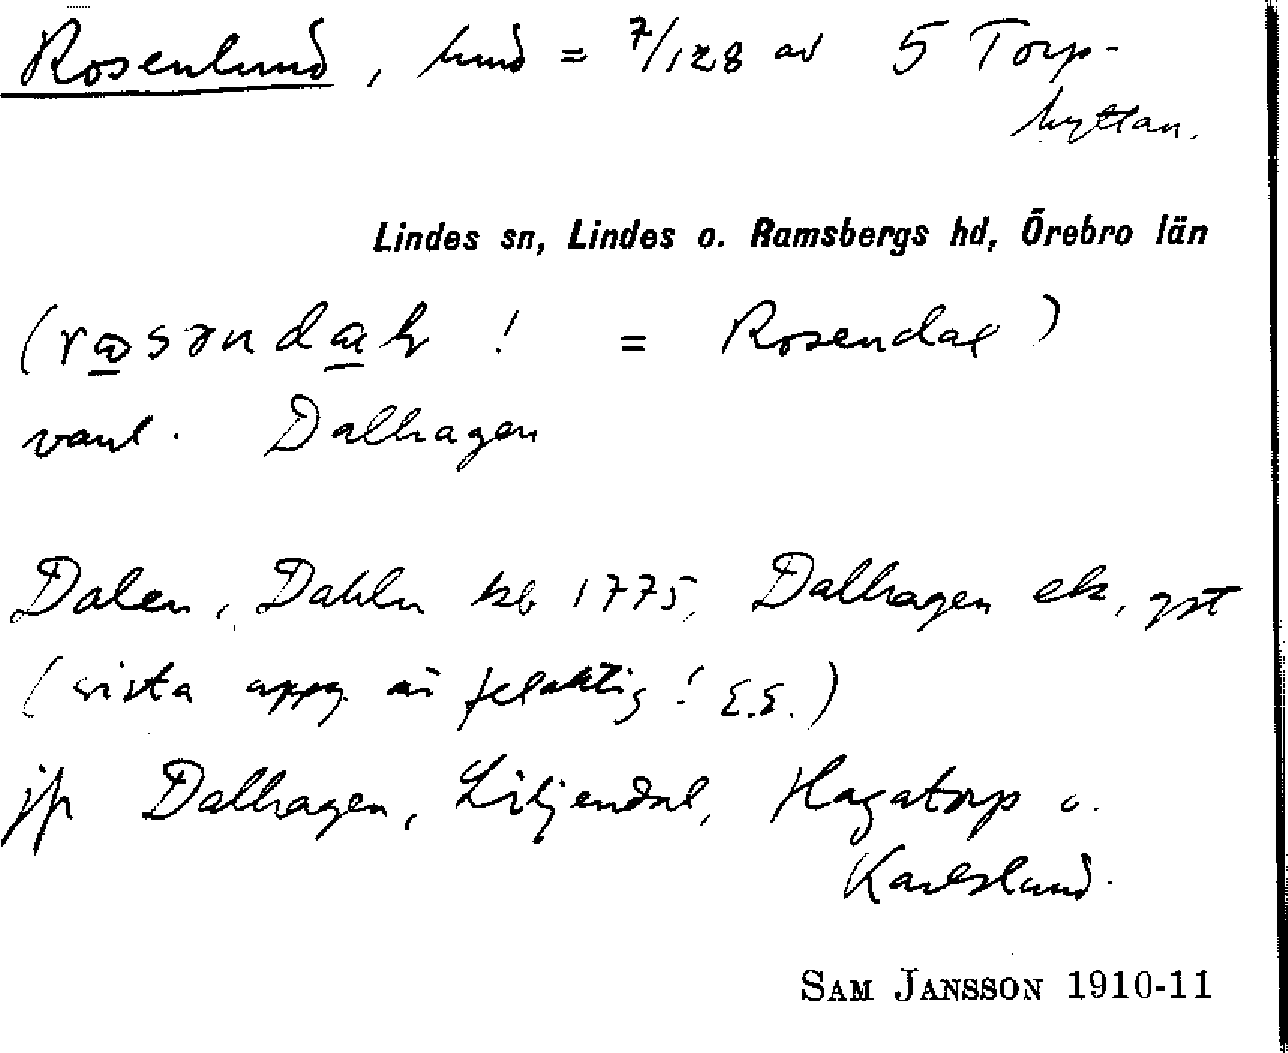 Rosenlund, hmd = 7/128 av 5 Torp-
hyttan.
Lindes sn, Lindes o. Ramsbergs hd, Örebro län
! = Rosendal)
vanl. Dalhagen
Dalen, Dahln kb 1775, Dalhagen ek, gst
(sista uppg. är felaktig! E.E.)
jfr Dalhagen, Liljendal, Hagatorp o.
Karlslund.
SAM JANSSON 1910-11